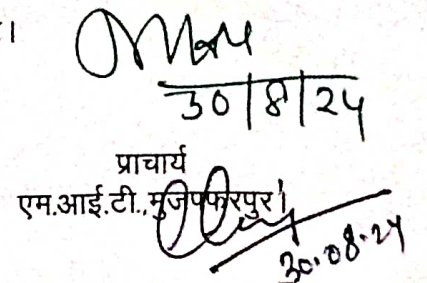 ।
30/8/24
प्राचार्य
एम.आई.टी., मुजफ्फरपुर।
30.08.24